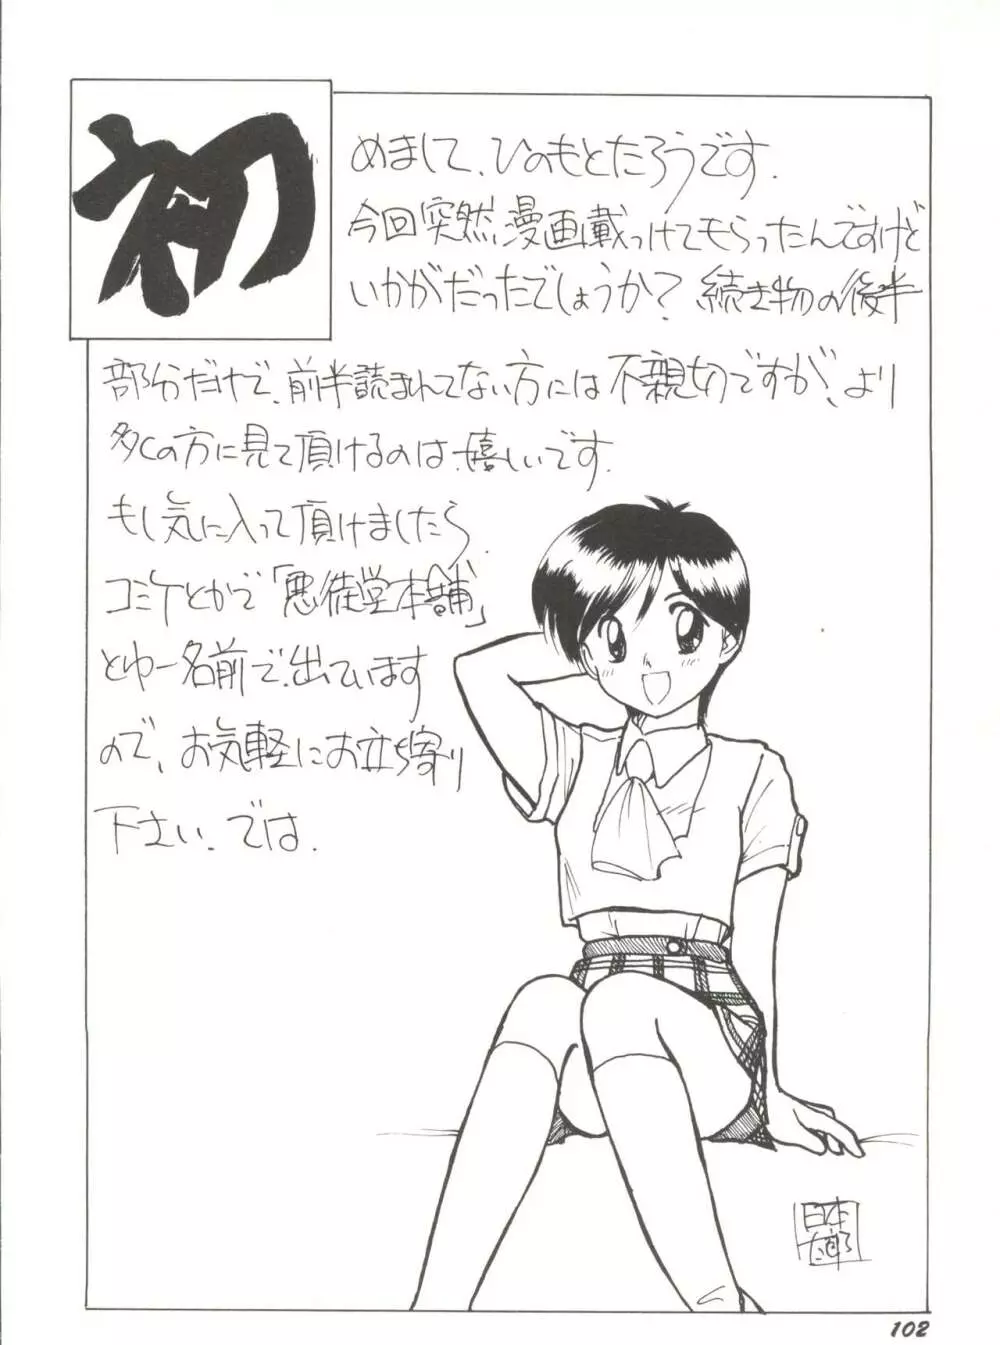 初
めまして、ひのもとたろうです.
今回突然漫画載っけてもらったんですけど
いかがだったでしょうか？続き物の後半
部分だけで、前半読まれてない方には不親切ですが、より
多くの方に見て頂けるのは、嬉しいです.
もし気に入って頂けましたら、
コミケとかで「悪徒堂本舗」
とゆー名前で、出ています
ので、お気軽にお立ち寄り
下さい.では.
日本
太郎
102